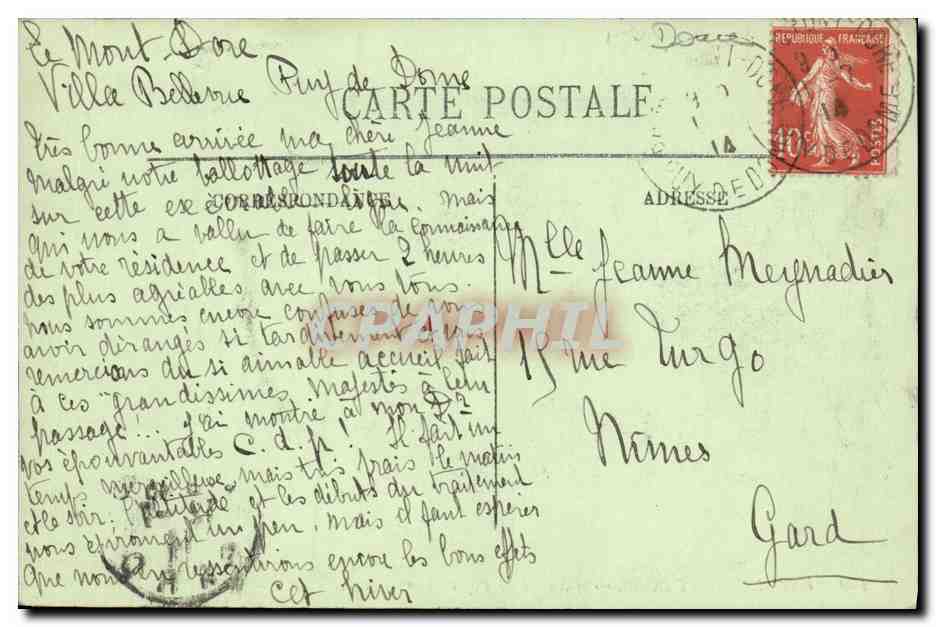 Le Mont Dore
Villa Bellevue Puy de Dome
CARTE POSTALE
Très bonne arrivée ma chère Jeanne
malgré notre ballottage toute la nuit
sur cette exécrable ligne. mais
qui nous a vallu de faire la connaissance
de votre résidence et de passer 2 heures
des plus agréables avec vous tous.
nous sommes encore confuses de vous
avoir dérangés si tardivement et vous
remercions du si aimable accueil fait
à ces "grandissimes" majestés à leur
passage ... j'ai montré à mon Dr
vos épouvantables C.d.p! Il fait un
temps merveilleux mais très frais le matin
et le soir. L'altitude et les débuts du traitement
nous éprouvent un peu. mais il faut espérer
que nous en ressentirons encore les bons effets
cet hiver
CORRESPONDANCE
ADRESSE
Mlle Jeanne Meynadier
15 rue Turgo
Nîmes
Gard
REPUBLIQUE FRANÇAISE
10c
POSTES
14
14
CPAPHIL